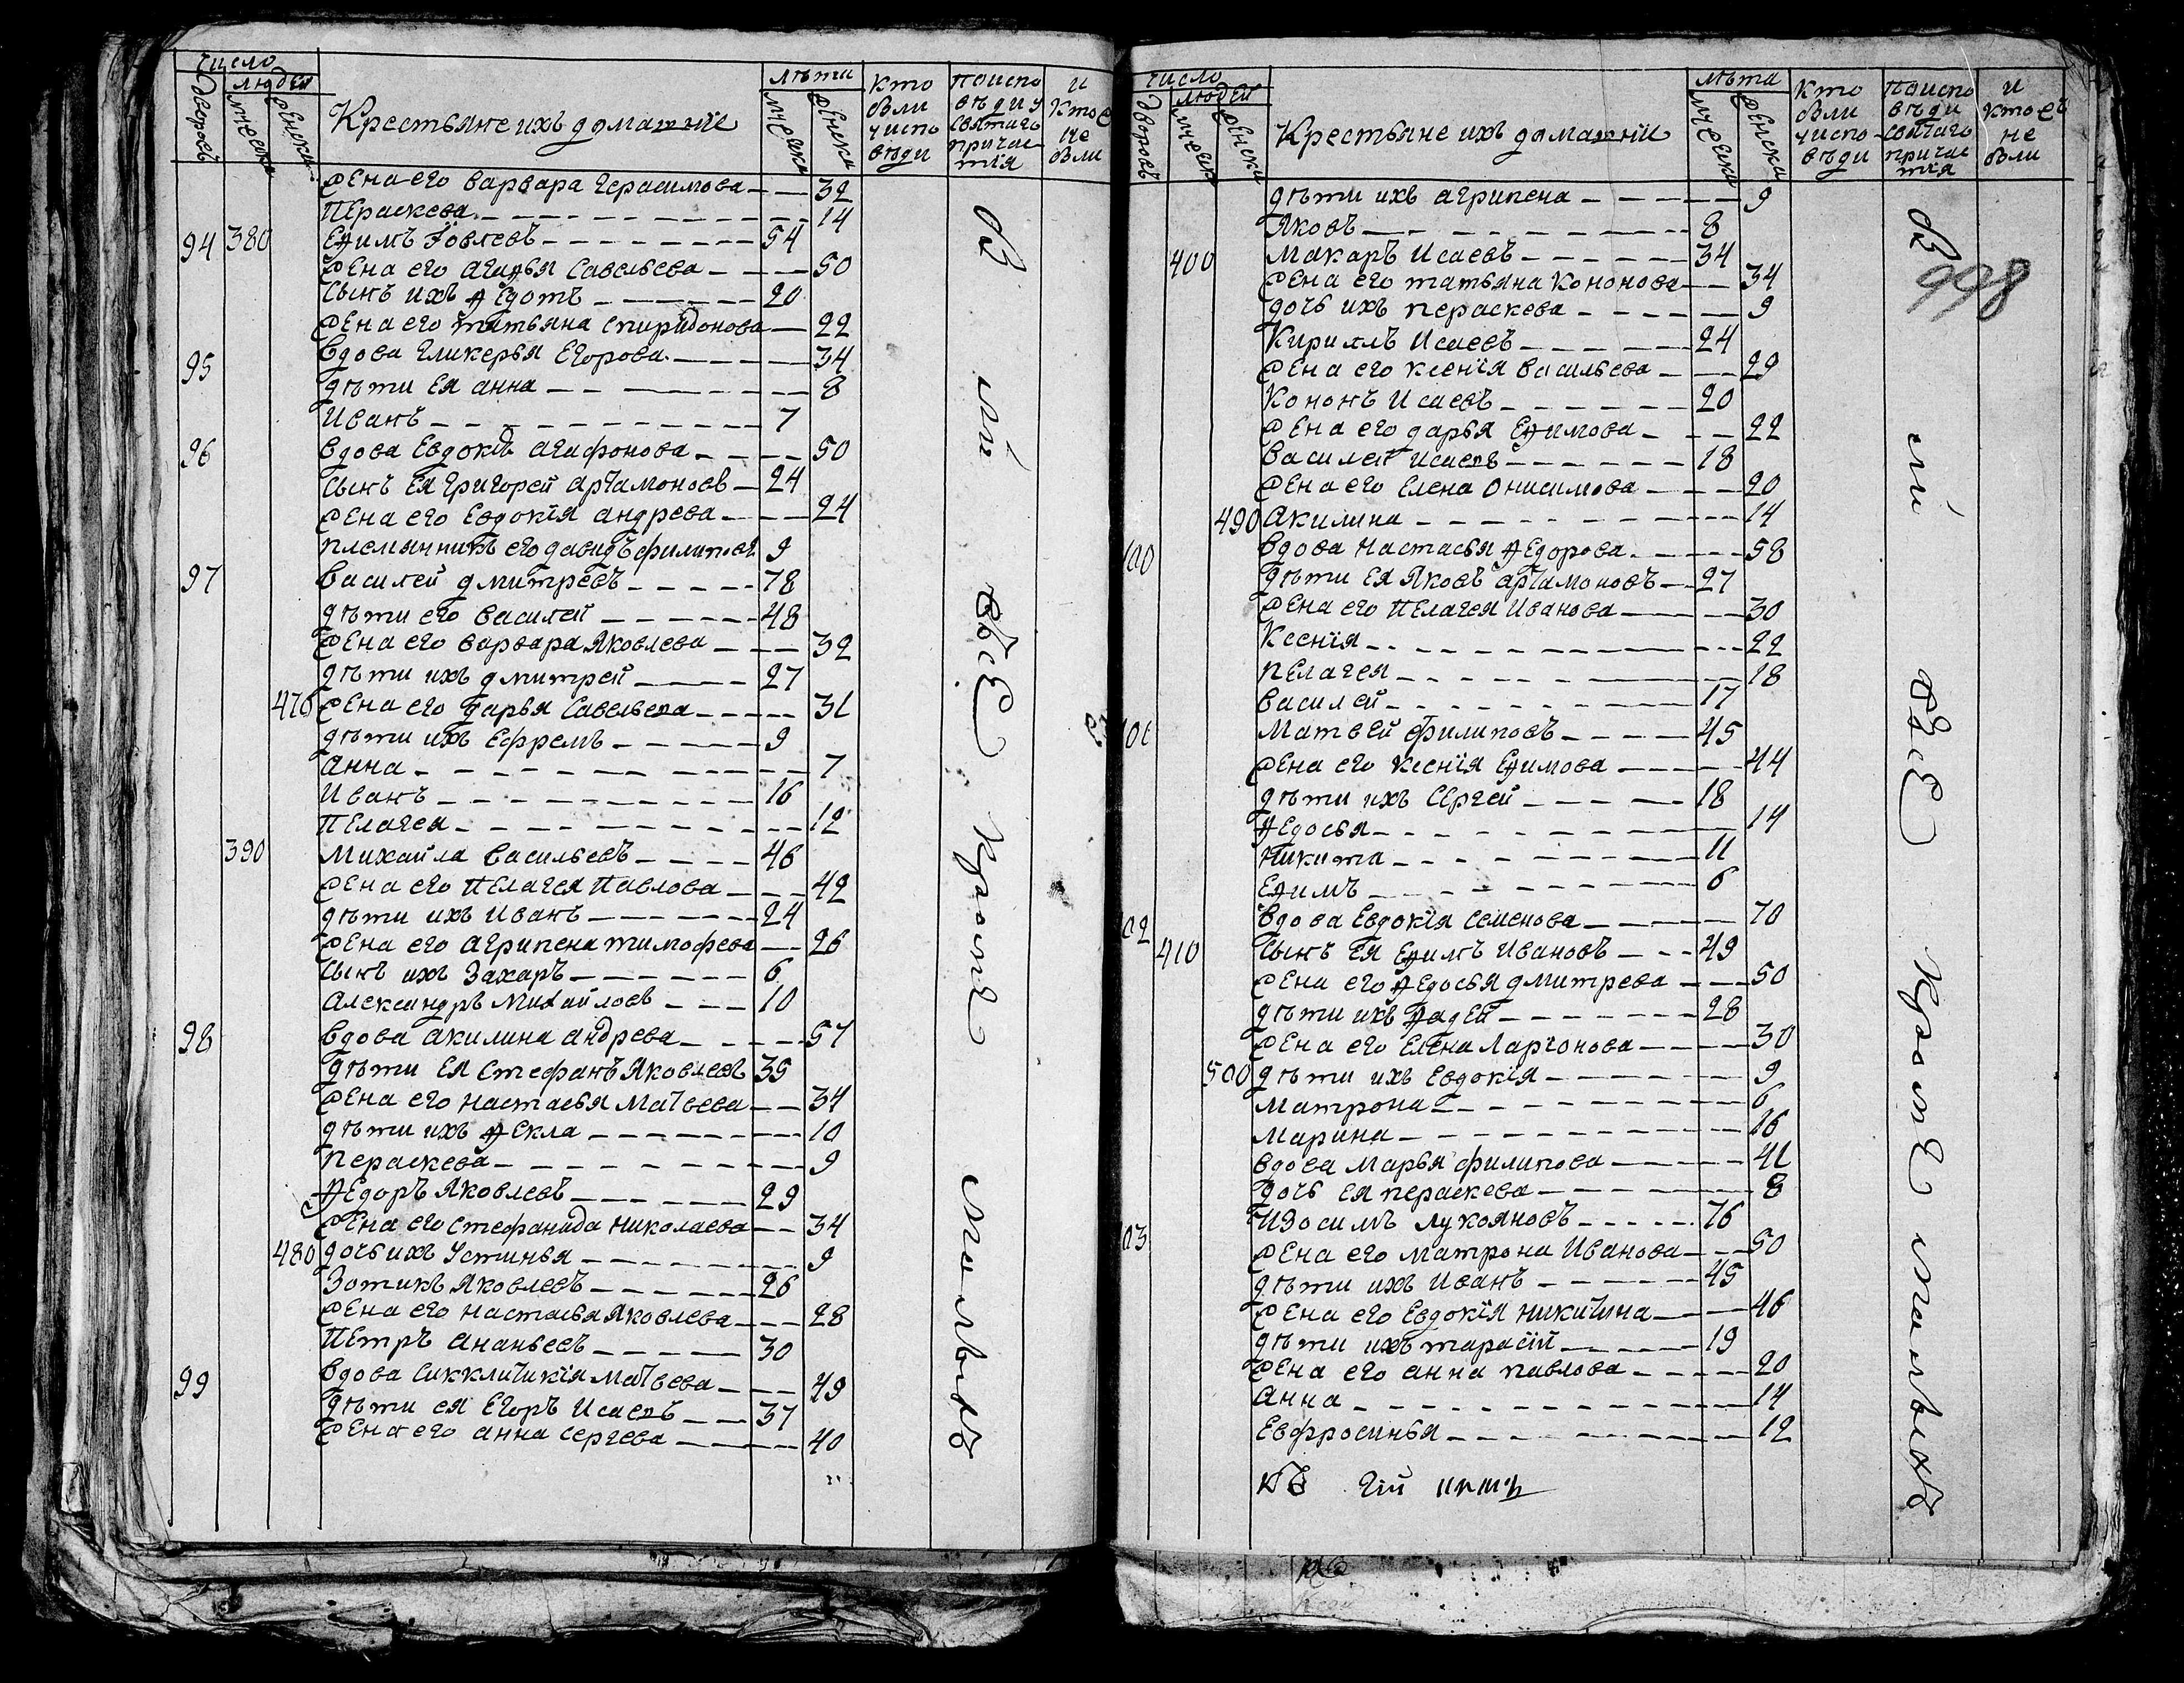 число
людей
дворовъ
мужска
женска
Крестьяне ихъ домашнiе
лѣта
мужска
женска
кто
были
у испо
вѣди
и
кто е
не
были
жена его варвара герасимова — 32
Пераскева — 14
94 380 Ефимъ Iовлевъ — 54
жена его агафья савельева — 50
сынъ ихъ Федотъ — 20
жена его татьяна спиридонова — 22
95 вдова гликерья Егорова — 34
дѣти Ея анна — 8
Иванъ — 7
96 вдова Евдокiя агафонова — 50
сынъ Ея григорей артамоновъ — 24
жена его Евдокiя андрева — 24
племянникъ его давидъ филиповъ 9
97 василей дмитревъ — 78
дѣти его василей — 48
жена его варвара Яковлева — 32
дѣти ихъ дмитрей — 27
470 жена его дарья савельева — 31
дѣти ихъ Ефремъ — 9
анна — 7
Иванъ — 16
Пелагея — 12
390 михайла васильевъ — 46
жена его Пелагея Павлова — 42
дѣти ихъ Иванъ — 24
жена его агрипена тимофева — 26
сынъ ихъ Захаръ — 6
александръ михайловъ — 10
98 вдова акилина андрева — 57
дѣти Ея стефанъ Яковлевъ 35
жена его настасья матвева — 34
дѣти ихъ Фекла — 10
пераскева — 9
Федоръ Яковлевъ — 29
жена его стефанида николаева — 34
480 дочь ихъ Устинья — 9
Зотикъ Яковлевъ — 26
жена его настасья Яковлева — 28
Петръ ананьевъ — 30
99 вдова матвева — 49
дѣти ея Егоръ Исаевъ — 37
жена его анна сергева — 40
В
сiи
всѣ
Кроме
малыхъ
число
людей
дворовъ
мужска
женска
Крестьяне ихъ домашнiи
лѣта
мужска
женска
кто
были
у испо-
вѣди
и
кто ...
не
были
дѣти ихъ агрипена — 9
Яковъ — 8
400 макаръ Исаевъ — 34
жена его татьяна кононова — 34
дочь ихъ пераскева — 9
Кирилъ Исаевъ — 24
жена его ксенiя васильева — 29
Кононъ Исаевъ — 20
жена его дарья Ефимова — 22
василей исаевъ — 18
жена его Елена Онисимова — 20
490 акилина — 14
100 вдова настасья Федорова — 58
дѣти Ея Яковъ артамоновъ — 27
жена его Пелагея Иванова — 30
Ксенiя — 22
Пелагея — 18
василей — 17
101 матвей филиповъ — 45
жена его ксенiя Ефимова — 44
дѣти ихъ сергей — 18
Федосья — 14
никита — 11
Ефимъ — 6
102 вдова Евдокiя семенова — 70
410 сынъ Ея Ефимъ Ивановъ — 49
жена его Федосья дмитрева — 50
дѣти ихъ Фадей — 28
жена его Елена Ларионова — 30
500 дѣти ихъ Евдокiя — 9
матрона — 6
марина — 16
вдова марья филипова — 41
дочь Ея пераскева — 8
103 Изосимъ лукояновъ — 76
жена его матрона Иванова — 50
дѣти ихъ Иванъ — 45
жена его Евдокiя никитина — 46
дѣти ихъ тарасiй — 19
жена его анна павлова — 20
анна — 14
Евфросинья — 12
В
998
сiи
всѣ
Кроме
малыхъ